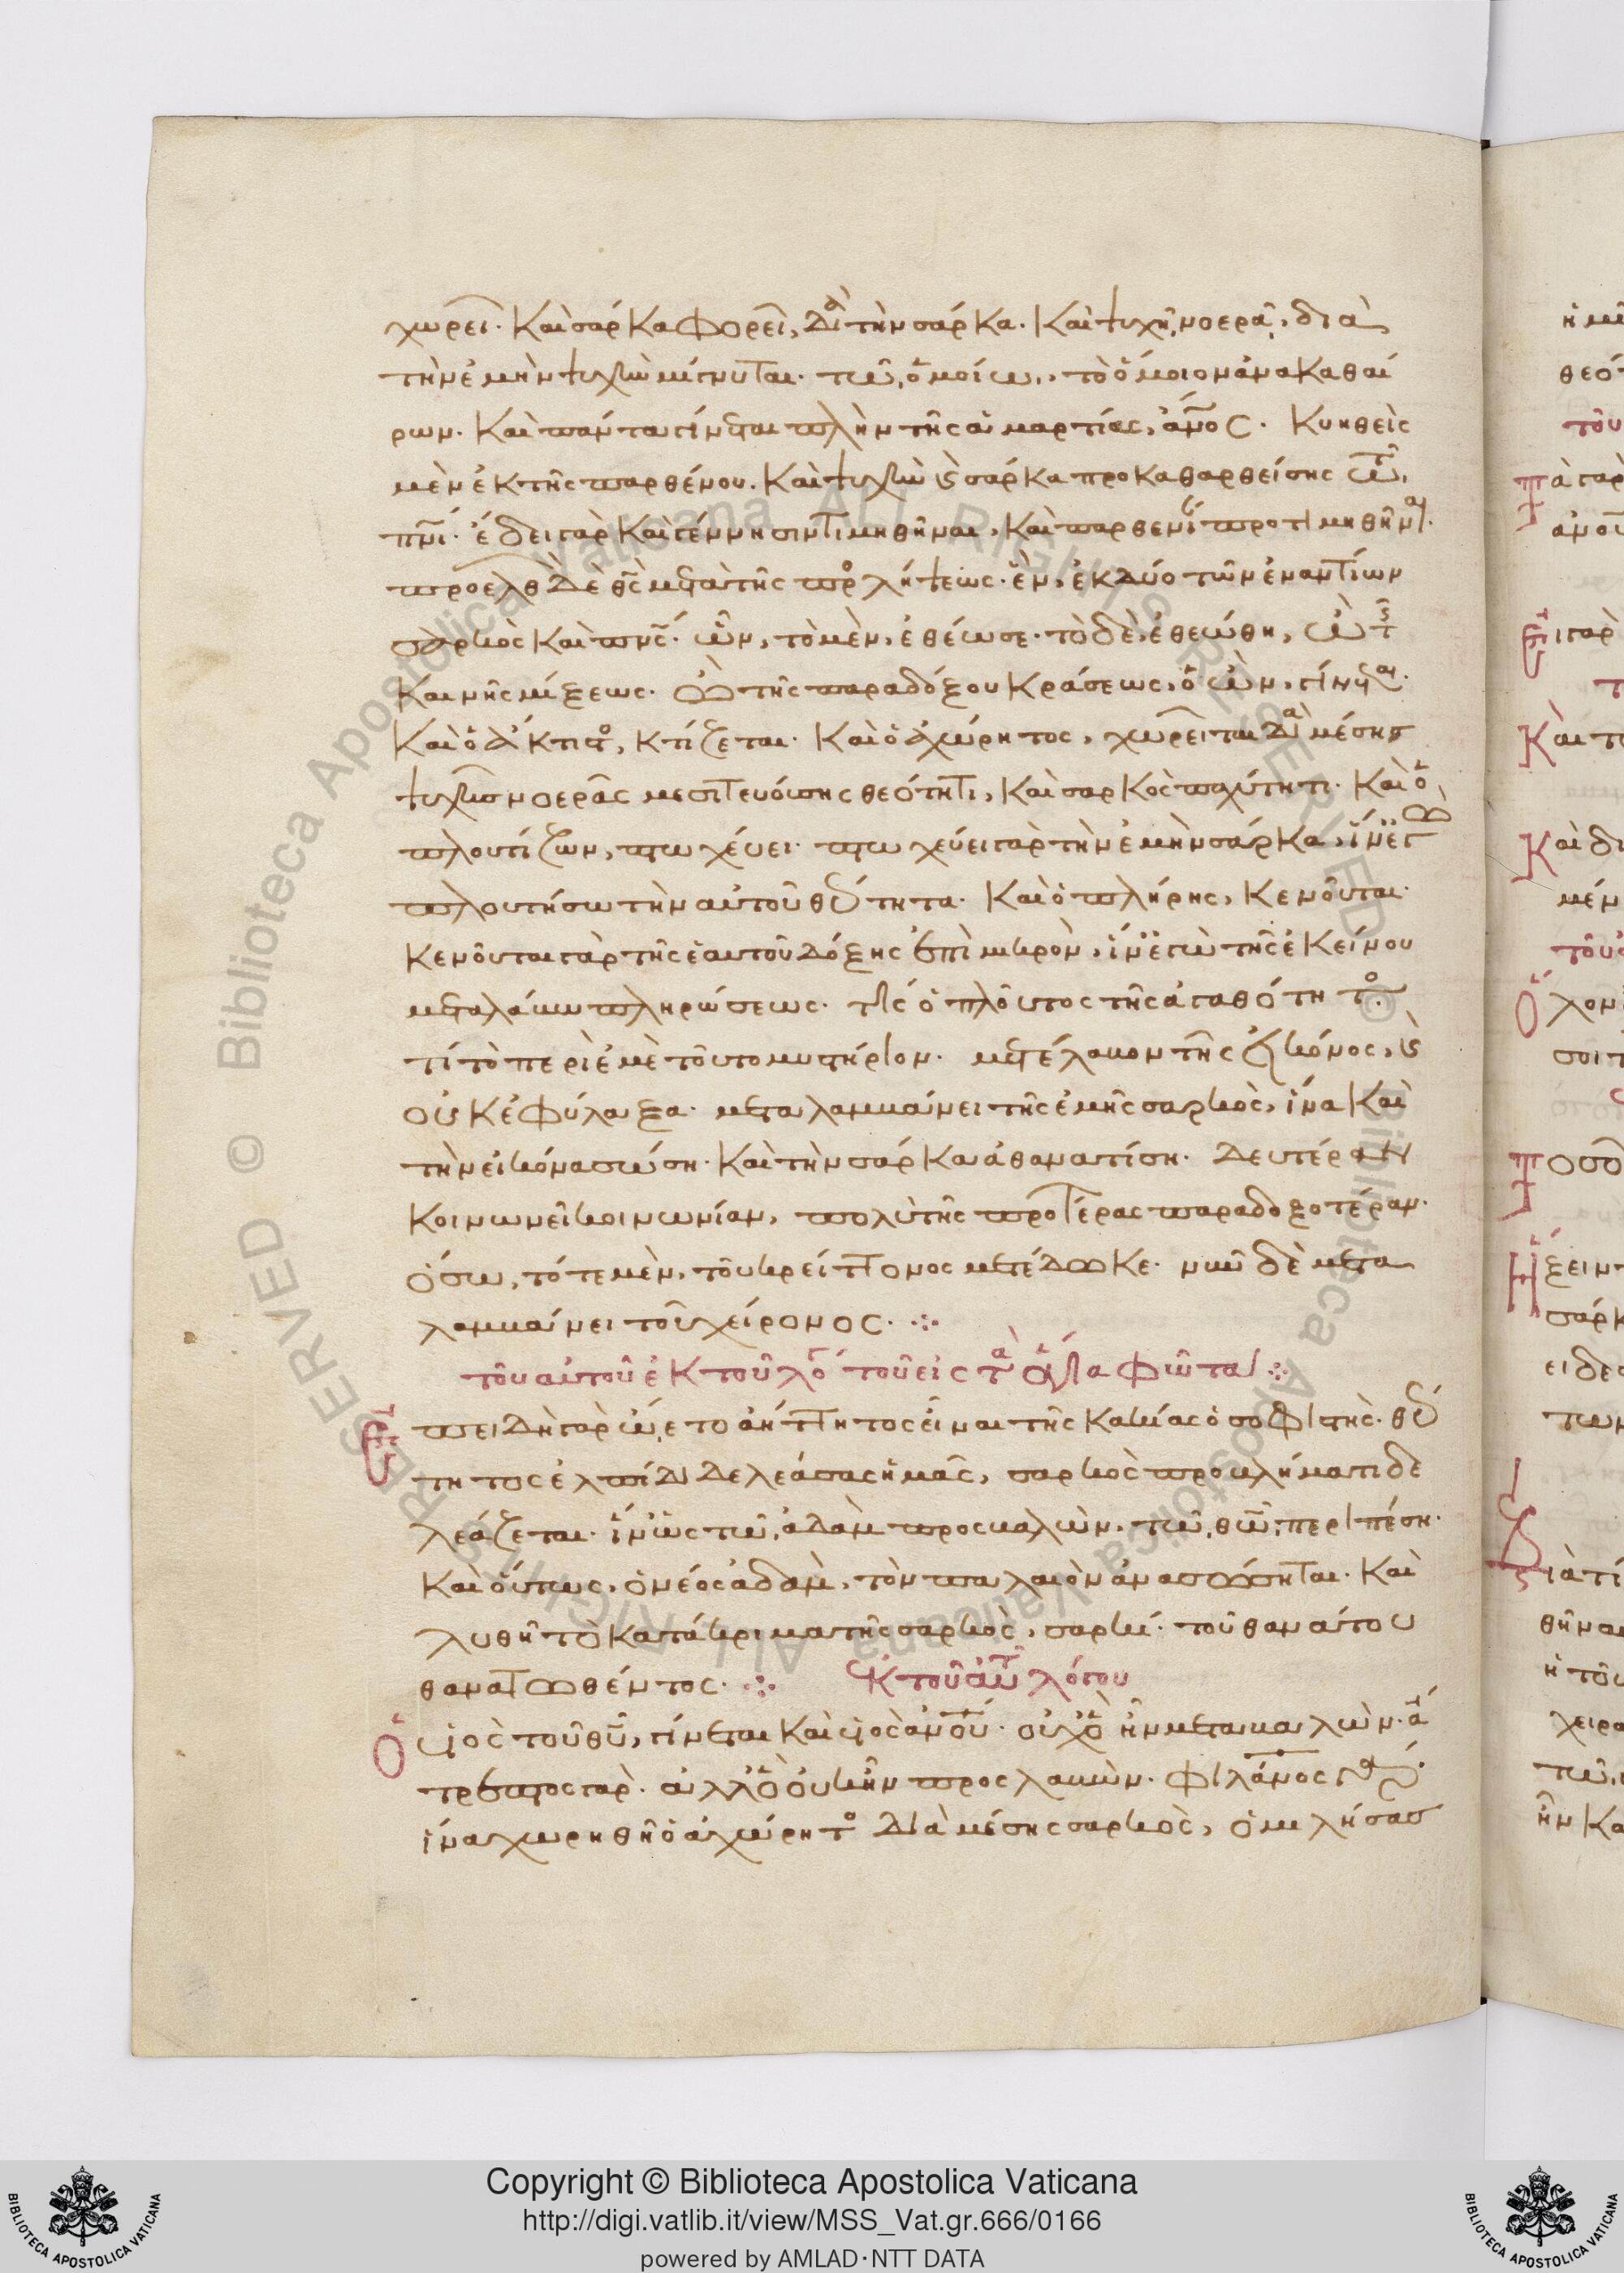 χωρεῖ· Καὶ σάρκα φορεῖ, διὰ τὴν σάρκα. Καὶ ψυχῇ νοερᾷ, διὰ
τὴν ἐμὴν ψυχὴν μίγνυται. τῶ ὁμοίω, τὸ ὅμοιον ἀνακαθαί
ρων. Καὶ πάντα γίνεται πλὴν τῆς ἁμαρτίας, ἄνος. Κυηθεὶς
μὲν ἐκ τῆς παρθένου. Καὶ ψυχὴν καὶ σάρκα προκαθαρθείσης τῶ
πνι. ἔδει γὰρ καὶ γέννησιν τιμηθῆναι, καὶ παρθενίαν προτιμηθῆναι.
προελθὼν δὲ θς μετὰ τῆς προσλήψεως. ἓν, ἐκ δύο τῶν ἐναντίων
σαρκὸς καὶ πνς. ὧν, τὸ μὲν, ἐθέωσε· τὸ δὲ, ἐθεώθη, ὢ τῆς
καινῆς μίξεως. ὢ τῆς παραδόξου κράσεως, ὁ ὢν, γίνεται.
Καὶ ὁ ἄκτιστος, κτίζεται. Καὶ ὁ ἀχώρητος, χωρεῖται διὰ μέσης
ψυχῆς νοερᾶς μεσιτευούσης θεότητι, καὶ σαρκὸς παχύτητι. Καὶ ὁ
πλουτίζων, πτωχεύει· πτωχεύει γὰρ τὴν ἐμὴν σάρκα, ἵν' ἐγὼ
πλουτήσω τὴν αὐτοῦ θεότητα. Καὶ ὁ πλήρης, κενοῦται.
κενοῦται γὰρ τῆς ἑαυτοῦ δόξης ἐπὶ μικρὸν, ἵν' ἐγὼ τῆς ἐκείνου
μεταλάβω πληρώσεως. τίς ὁ πλοῦτος τῆς ἀγαθότητος.
τί τὸ περὶ ἐμὲ τοῦτο μυστήριον. μετέλαβον τῆς εἰκόνος, καὶ
οὐκ ἐφύλαξα. μεταλαμβάνει τῆς ἐμῆς σαρκὸς, ἵνα καὶ
τὴν εἰκόνα σώση. Καὶ τὴν σάρκα ἀθανατίση. Δευτέραν
Κοινωνεῖ κοινωνίαν, πολὺ τῆς προτέρας παραδοξοτέραν.
ὅσω, τότε μὲν, τοῦ κρείττονος μετέδωκε. νῦν δὲ μετα
λαμβάνει τοῦ χείρονος.
τοῦ αὐτοῦ ἐκ τοῦ λό τοῦ εἰς τὰ ἅγια φῶτα
Ἐπειδὴ γὰρ ὤετο ἀήττητος εἶναι τῆς κακίας ὁ σοφιστὴς. θεό
τητος ἐλπίδι δελεάσας ἡμᾶς, σαρκὸς προβλήματι δε
λεάζεται. ἵν' ὡς τῶ ἀδὰμ προσβαλὼν, τῶ θω περιπέση.
Καὶ οὕτως, ὁ νέος ἀδὰμ, τὸν παλαιὸν ἀνασώσηται. Καὶ
λυθῆ τὸ κατάκριμα τῆς σαρκὸς, σαρκὶ. τοῦ θανάτου
θανατωθέντος. Ἐκ τοῦ αὐτ λόγου
Ὁ υἱὸς τοῦ θυ, γίνεται καὶ υἱὸς ἀνου. οὐχ ὃ ἦν μεταβαλών. ἄ
τρεπτος γάρ. ἀλλ' ὃ οὐκ ἦν προσλαβὼν. φιλάνος γάρ.
ἵνα χωρηθῆ ὁ ἀχώρητος διὰ μέσης σαρκὸς, ὁμιλήσας